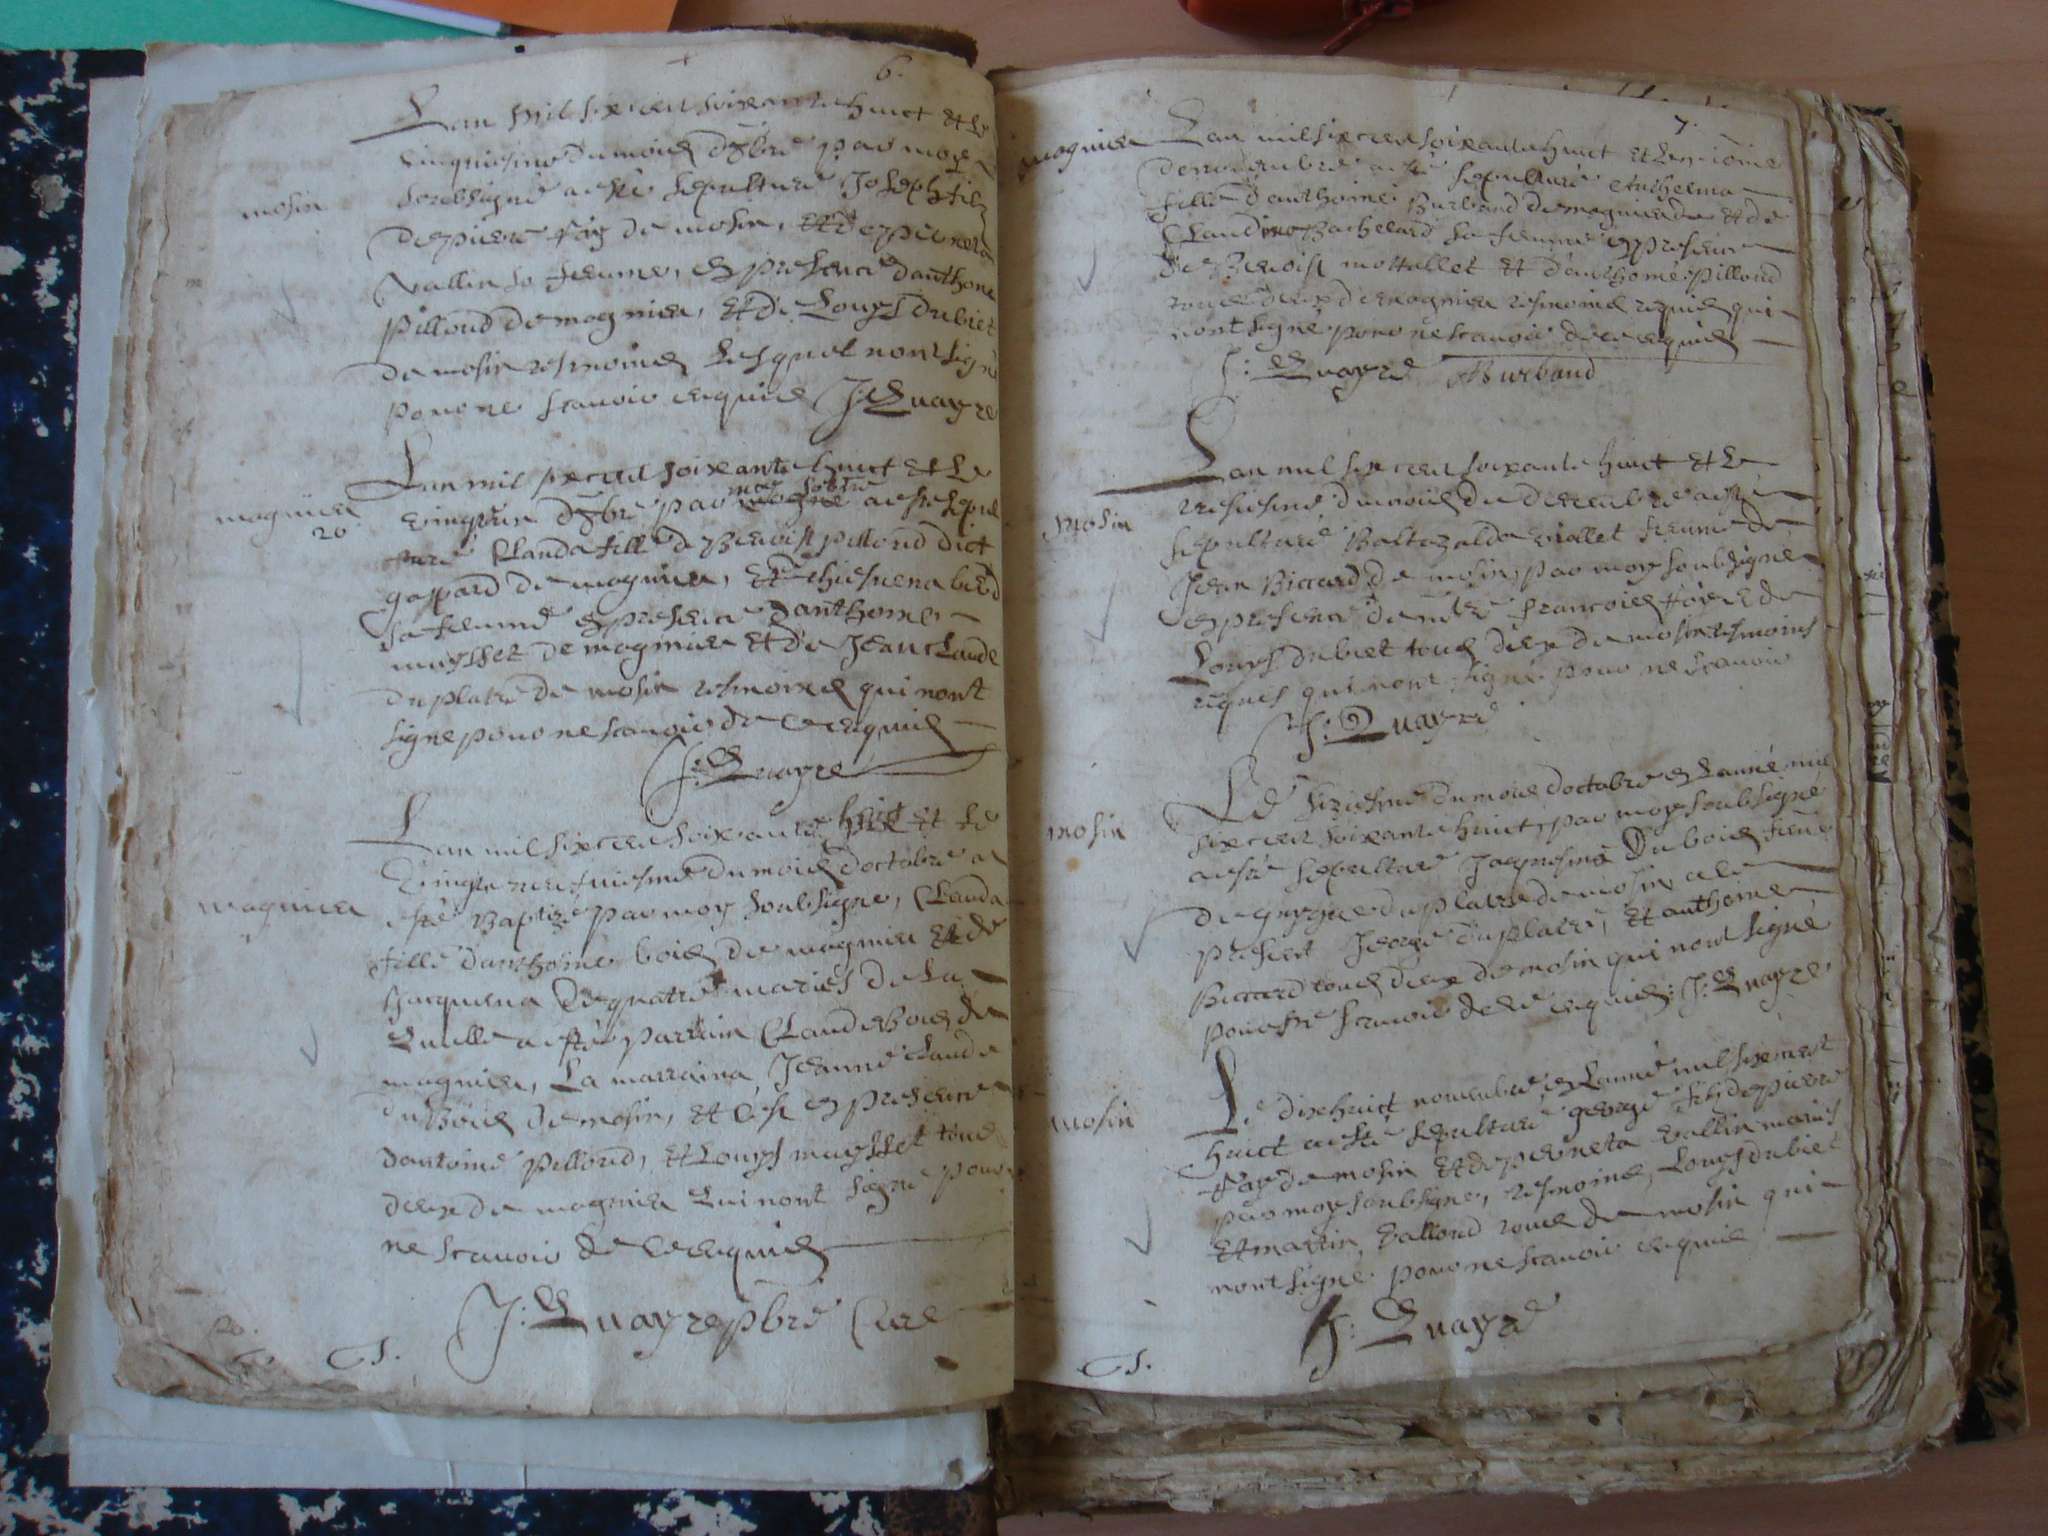 6.
Lan mil six cent soixante huict et le
cinquiesme du mois d'8bre par moy
mosin
soubsigné a esté sepulturé Joseph filz
de pierre fay de mosin, et de perneta
Vallin sa femme, en presence danthone
pilloud de magnieu, et de Louys dubiet
de mosin tesmoins lesquel nont signé
pour ne scauoir enquis J: Quayre
Lan mil six cent soixante huict et le
magnieu
20
vingtiesme d'8bre par moy soubsigné a esté sepul
turé Clauda fille de Benoist pilloud dict
gaspard de magnieu, et
sa femme en presence danthome
muysset de magnieu et de Jean Claude
duplatre de mosin tesmoins qui nont
signe pour ne scauoir de ce enquis
J: Quayre
Lan mil six cent soixante huict et le
vingt neufuiesme du mois doctobre a
magnieu
esté Baptizé par moy soubsigne, Clauda
fille danthoine bois de magnieu et de
Jacquema de quatre maries de La
quelle a esté parrain Claude Bois de
magnieu, La marraina Jeanne Claude
du Bois de mosin, et Cest en presence
dantoine pilloud, et Louys muysset tous
deux de magnieu qui nont signé pour
ne scauoir de ce enquis
J: Quayre pbre Cure
7.
magnieu
Lan mil six cent soixante huict et
de nouembre a esté sepulturé Anthelma
fille d'anthoine Burband de magnieu et de
Claudine Bachelard sa femme en presence
de Benoist mottallet et d'anthome pilloud
tous deux de magnieu tesmoins requis qui
nont signé pour ne scauoir de ce enquis
J: Quayre Burband
Lan mil six cent soixante huict et le
mosin
tresiesme du mois de decembre a esté
sepulturé Baltazalda violet femme de
Jean Biccard de mosin, par moy soubsigne
en presence de francois fovre de
Louys dubiet tous deux de mosin tesmoins
requis qui nont signe pour ne scauoir
J: Quayre
Le siziesme du mois doctobre en Lanné mil
mosin
six cent soixante huict, par moy soubsigné
a esté sepulture Jaquesme Du bois feme
de guygue duplatre de mosin a ce
present George duplatre, et anthoine
Biccard tous deux de mosin qui nont signé
pour ne scauoir de ce enquis: J: Quayre
Le dixhuict nouembre en Lanné mil six cent
mosin
huict a esté sepulturé george filz de pierre
fay de mosin et de perneta vallin maries
par moy soubsigne, tesmoins, Louys dubiet
et martin vallond tous de mosin qui
nont signe pour ne scauoir enquis
J: Quayre